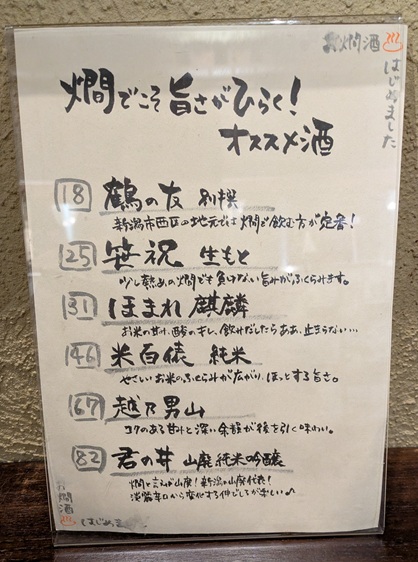 お燗酒
はじめました
燗でこそ旨さがひらく!
オススメ酒
18 鶴の友 別撰
新潟市西区の地元では燗で飲む方が定番!
25 笹祝 生もと
少し熱めの燗でも負けない旨みがふくらみます。
31 ほまれ麒麟
お米の甘み、酸のキレ、飲みだしたらああ、止まらない…
46 米百俵 純米
やさしいお米のふくらみが広がり、ほっとする旨さ。
67 越乃男山
コクのある甘みと深い余韻が後を引く味わい。
82 君の井 山廃純米吟醸
燗と言えば山廃!新潟の山廃代表!
淡麗辛口から変化する伸びしろが楽しい♪
お燗酒
はじめま